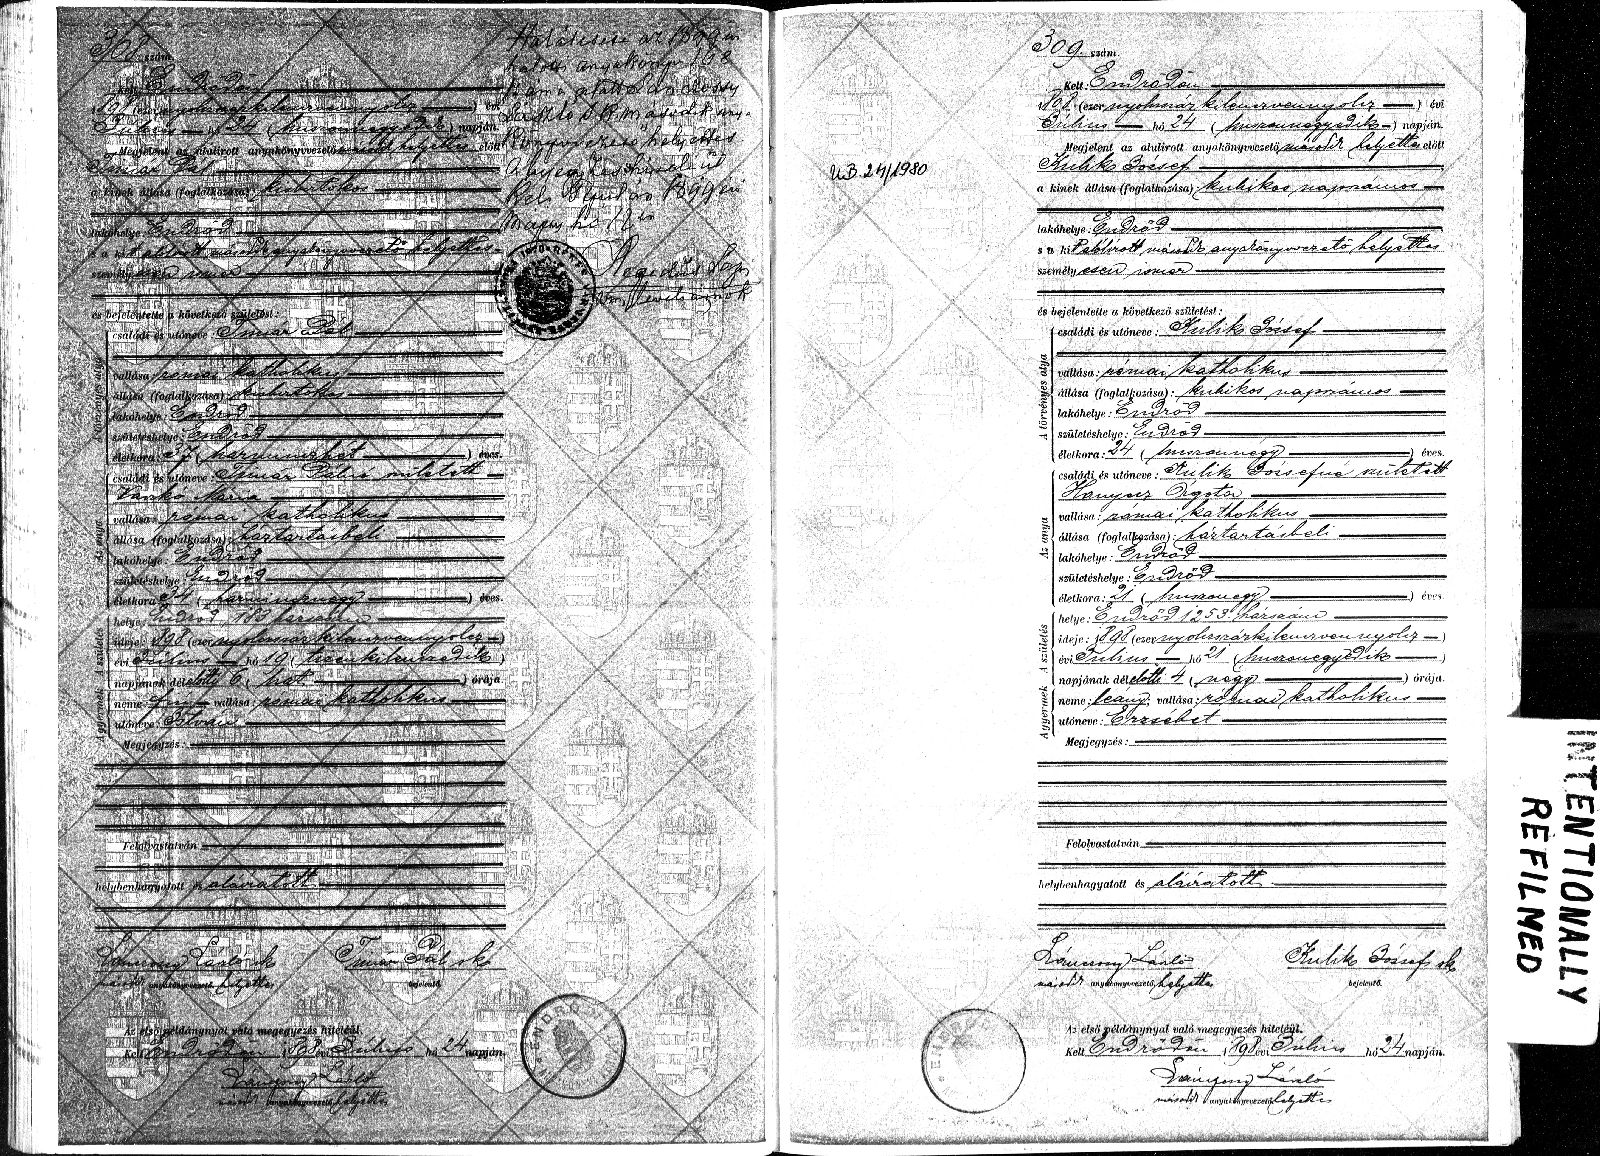 308. szám.
Kelt: Endrődön
1898 (ezer nyolczszázkilenczvennyolcz) évi
Július hó 24 (huszonnegyedik) napján.
Megjelent az alulírott anyakönyvvezető második helyettes előtt
Timár Pál
a kinek állása (foglalkozása): kisbirtokos
lakóhelye: Endrőd
s a kit alólirott második anyakönyvvezető helyettes
személyesen ismer
és bejelentette a következő születést:
A törvényes atya
családi és utóneve: Timár Pál
vallása: római katholikus
állása (foglalkozása): kisbirtokos
lakóhelye: Endrőd
születéshelye: Endrőd
életkora: 37 (harminczhét) éves.
Az anya
családi és utóneve: Timár Pálné született
Vaskó Mária
vallása: római katholikus
állása (foglalkozása): háztartásbeli
lakóhelye: Endrőd
születéshelye: Endrőd
életkora: 34 (harmincznégy) éves.
A születés
helye: Endrőd, 183 házszám
ideje: 1898 (ezer nyolczszázkilenczvennyolcz)
évi Július hó 19 (tizenkilenczedik)
napjának délelőtti 6 (hat) órája
A gyermek
neme: fiu vallása: római katholikus
utóneve: István
Megjegyzés:
Felolvastatván
helybenhagyatott és aláiratott
László sk
második anyakönyvvezető helyettes
Timár Pál sk
bejelentő.
Az első példánynyal való megegyezés hiteléül.
Kelt Endrődön 1898 évi Július hó 24 napján.
László
második anyakönyvvezető helyettes
Halálesete az 1899 évi
halotti anyakönyv 198
szám alatt
László sk második any-
könyvvezető helyettes
A bejegyzés hiteléül
1899 évi
hó
ENDRŐD
UB. 24/1980
309. szám.
Kelt: Endrődön
1898 (ezer nyolczszáz kilenczvennyolcz) évi
Július hó 24 (huszonnegyedik) napján.
Megjelent az alulírott anyakönyvvezető második helyettes előtt
Kulik József
a kinek állása (foglalkozása): kubikos napszámos
lakóhelye: Endrőd
s a kit alólirott második anyakönyvvezető helyettes
személyesen ismer
és bejelentette a következő születést:
A törvényes atya
családi és utóneve: Kulik József
vallása: római katholikus
állása (foglalkozása): kubikos napszámos
lakóhelye: Endrőd
születéshelye: Endrőd
életkora: 24 (huszonnégy) éves.
Az anya
családi és utóneve: Kulik Józsefné született
Hanyecz Örzse
vallása: római katholikus
állása (foglalkozása): háztartásbeli
lakóhelye: Endrőd
születéshelye: Endrőd
életkora: 21 (huszonegy) éves.
A születés
helye: Endrőd 1253. házszám
ideje: 1898 (ezer nyolczszázkilenczvennyolcz)
évi Július hó 21 (huszonegyedik)
napjának délelőtti 4 (négy) órája.
A gyermek
neme: leány; vallása: római katholikus
utóneve: Erzsébet
Megjegyzés:
Felolvastatván
helybenhagyatott és aláiratott
László
második anyakönyvvezető helyettes
Kulik József sk
bejelentő.
Az első példánynyal való megegyezés hiteléül.
Kelt Endrődön 1898 évi Július hó 24 napján.
László
második anyakönyvvezető helyettes
INTENTIONALLY
REFILMED